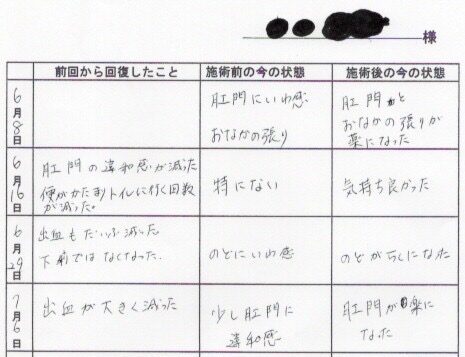 様
前回から回復したこと 施術前の今の状態 施術後の今の状態
6月8日
肛門にいわ感
おなかの張り
肛門と
おなかの張りが
楽になった
6月16日
肛門の違和感が減った
便がかたまりトイレに行く回数
が減った。
特にない
気持ち良かった
6月29日
出血もだいぶ減った
下痢ではなくなった.
のどにいわ感
のどがらくになった
7月6日
出血が大きく減った
少し肛門に
違和感
肛門が楽に
なった